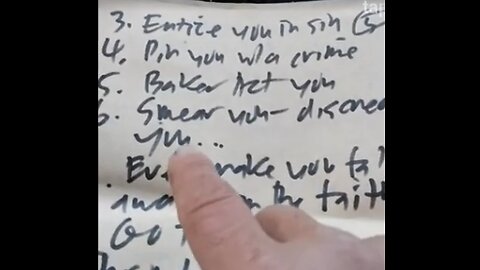 tap
3. Entice you in sin (5
4. Pin you w/a crime
5. Baker Act you
6. Smear you - discred
you...
Ev make you fa
away the faith
Go t